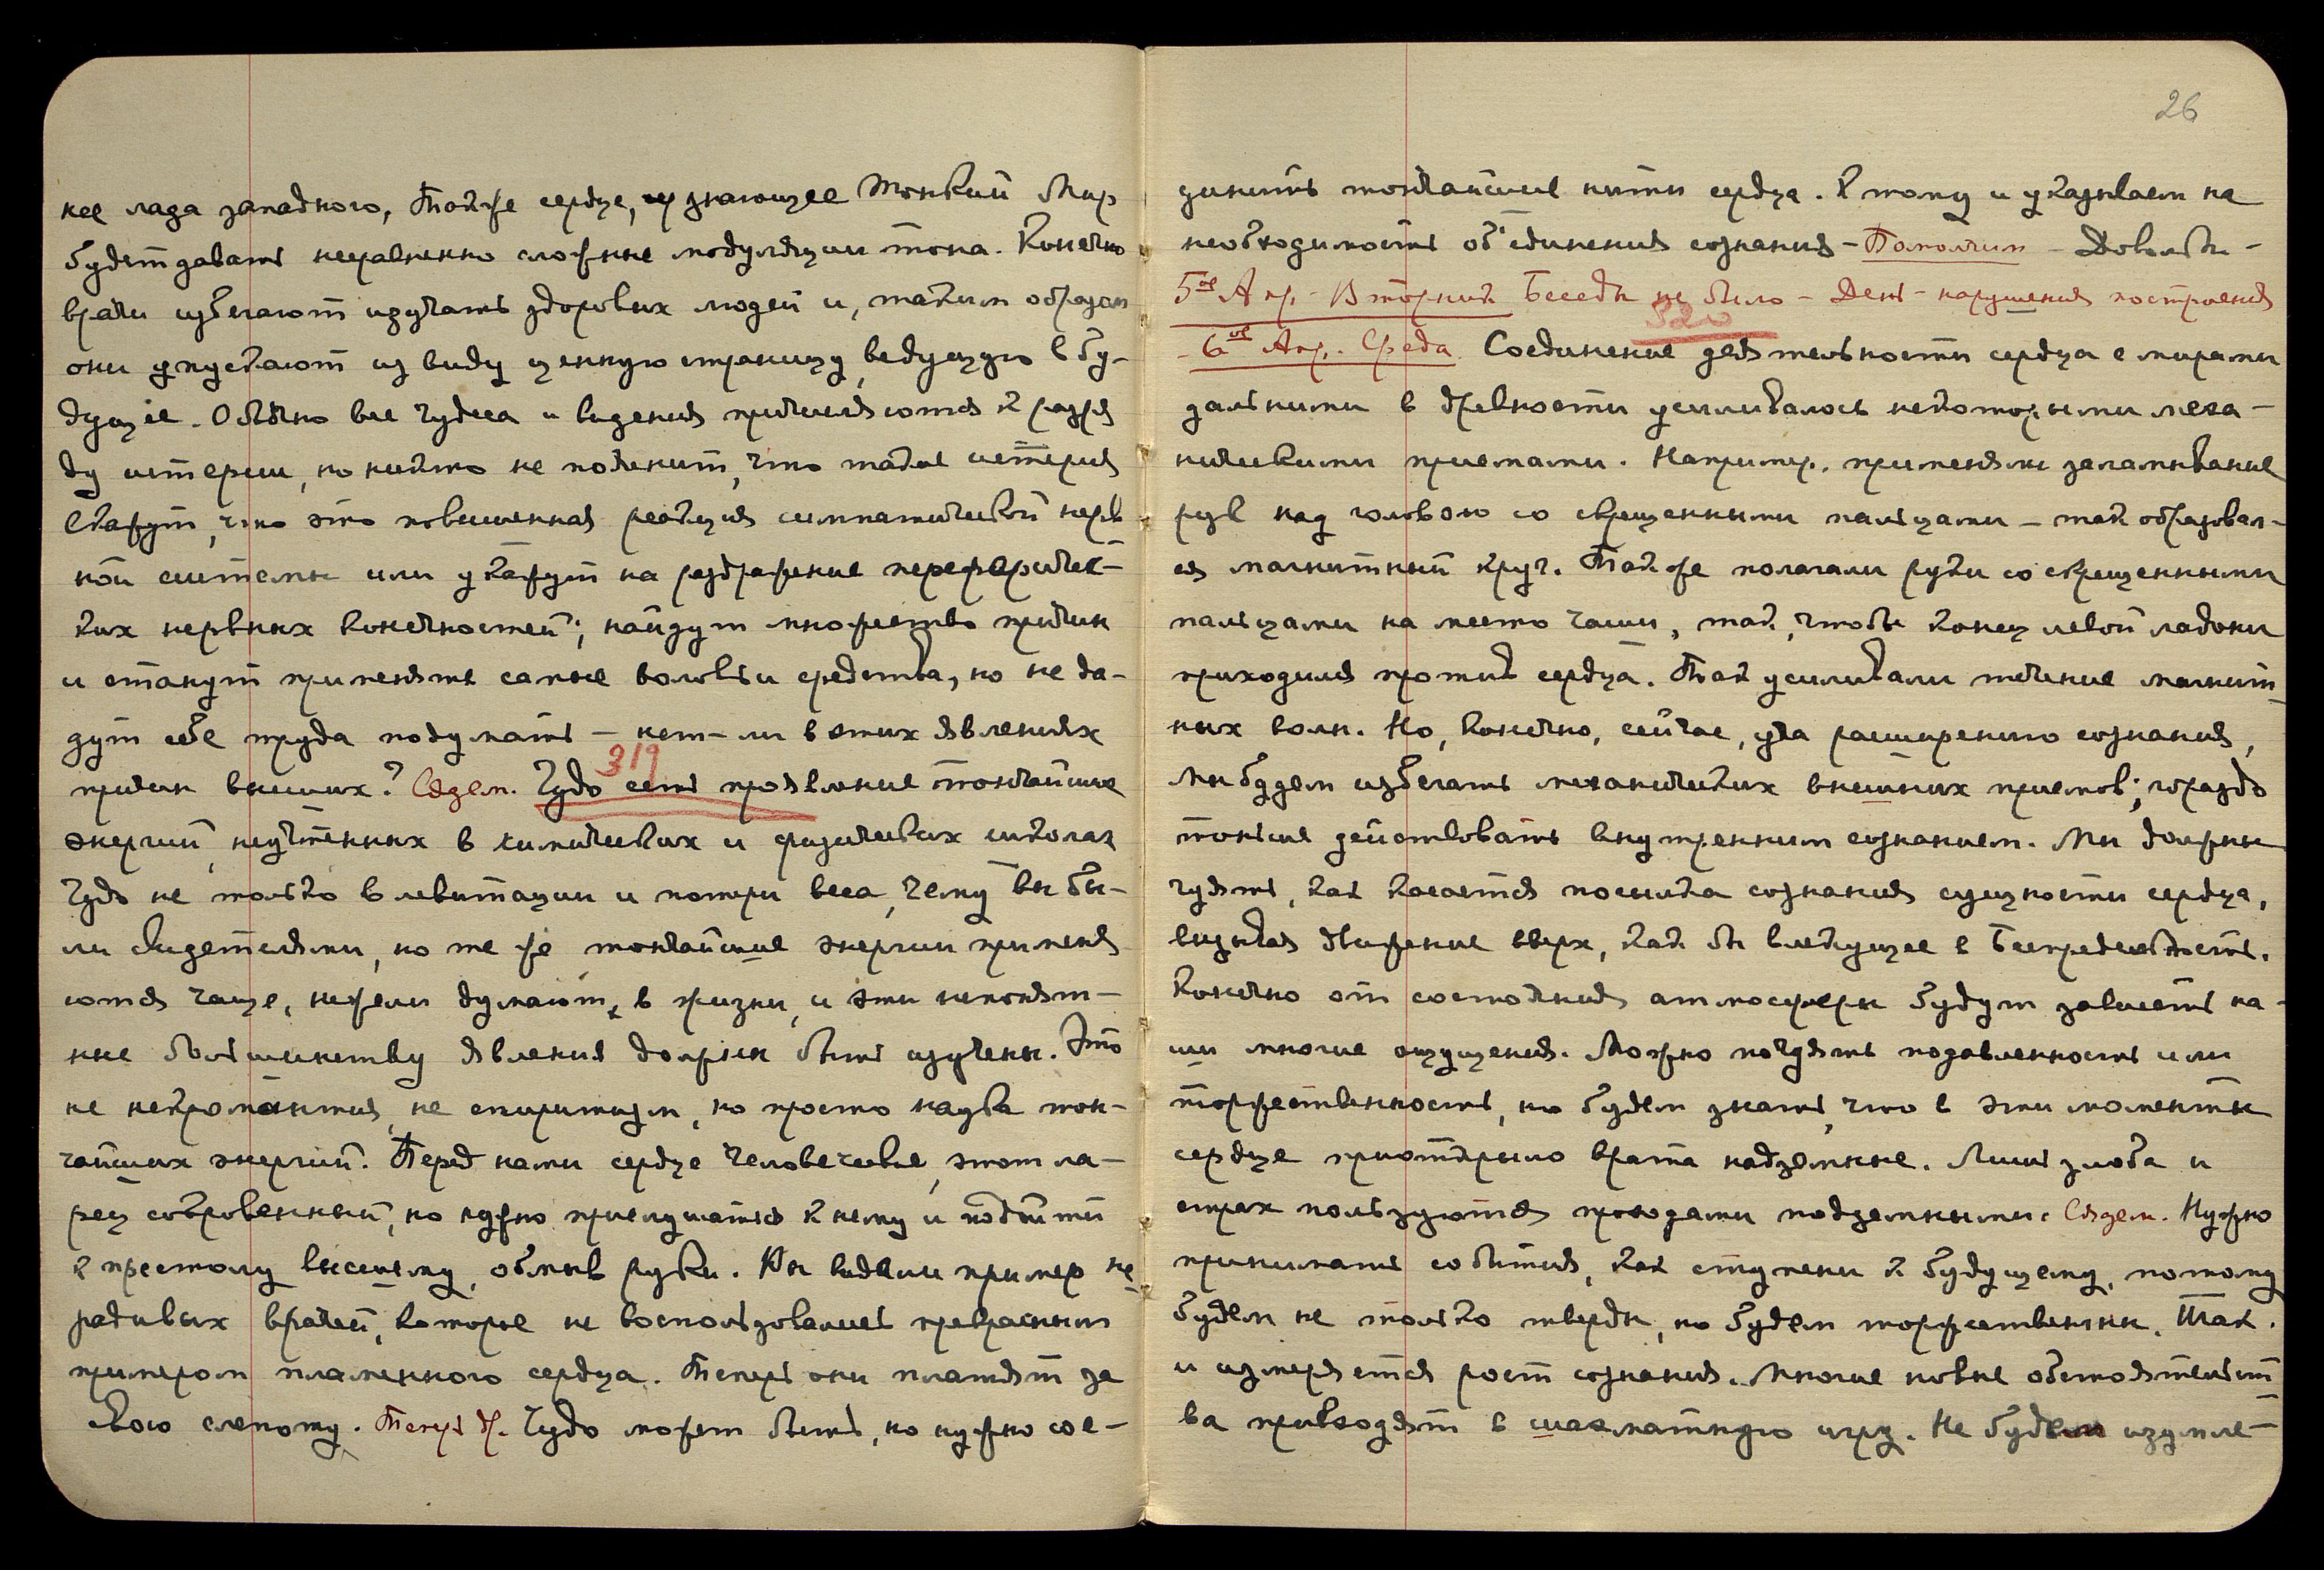 нее лада западного, Также сердце, знающее Тонкий Мир
будет давать несравненно сложные модуляции тона. Конечно
врачи избегают изучать здоровых людей и, таким образом
они упускают из виду ценную страницу, ведущую в бу-
дущее. Обычно все чудеса и видения причисляются к разря
ду истерии, но никто не пояснит, что такое истерия
Скажут, что это повышенная реакция симпатической нерв
ной системы или укажут на раздражение перефөричес-
ких нервных конечностей; найдут множество причин
и станут применять самые воловьи средства, но не да-
дут себе труда подумать — нет-ли в этих явлениях
причин высших? Сядем. Чудо есть проявление тончайших
319
энергий, неучтенных в химических и физических школах
Чудо не только в левитации и потери веса, чему вы бы-
ли свидетелями, но те же тончайшие энергии применя
ются чаще, нежели думают, в жизни, и эти непонят-
ные большинству явления должны быть изучены. Это
не некромантия, не спиритизм, но просто наука тон-
чайших энергий. Перед нами сердце человеческое, этот ла-
рец сокровенный, но нужно прислушаться к нему и подойти
к престолу высшему, обмыв руки. Вы видели пример не
радивых врачей, которые не воспользовались прекрасным
примером пламенного сердца. Теперь они платят за
свою слепоту. Теперь др. Чудо может быть, но нужно сое-
26
динить тончайшие нити сердца. К тому и указываем на
необходимость об'единения сознания — Помолчим — Довольно —
5ое Апр. — Вторник Беседы не было — День — нарушения построения
320
— 6ое Апр. Среда. Соединение деятельности сердца с мирами
дальними в древности усиливалось некоторыми меха-
ническими приемами. Например, применяли заламывание
рук над головою со скрещенными пальцами — так образовал-
ся магнитный круг. Также полагали руки со скрещенными
пальцами на место чаши, так, чтобы конец левой ладони
приходился против сердца. Так усиливали течение магнит-
ных волн. Но, конечно, сейчас, уча расширению сознания,
Мы будем избегать механических внешних приемов; гораздо
тоньше действовать внутренним сознанием. Мы должны
чуять, как касается посылка сознания сущности сердца,
вызывая движение вверх, как бы влекущее в Беспредельность.
Конечно от состояния атмосферы будут зависеть на-
ши многие ощущения. Можно почуять подавленность или
торжественность, но будем знать, что в эти моменты
сердце приоткрыло врата надземные. Лишь злоба и
страх пользуются проходами подземными. Сядем. Нужно
принимать события, как ступени к будущему, потому
будем не только тверды, но будем торжественны. Так
и измеряется рост сознания. Многие новые обстоятельст
ва привходят в шахматную игру. Не будем изумле-